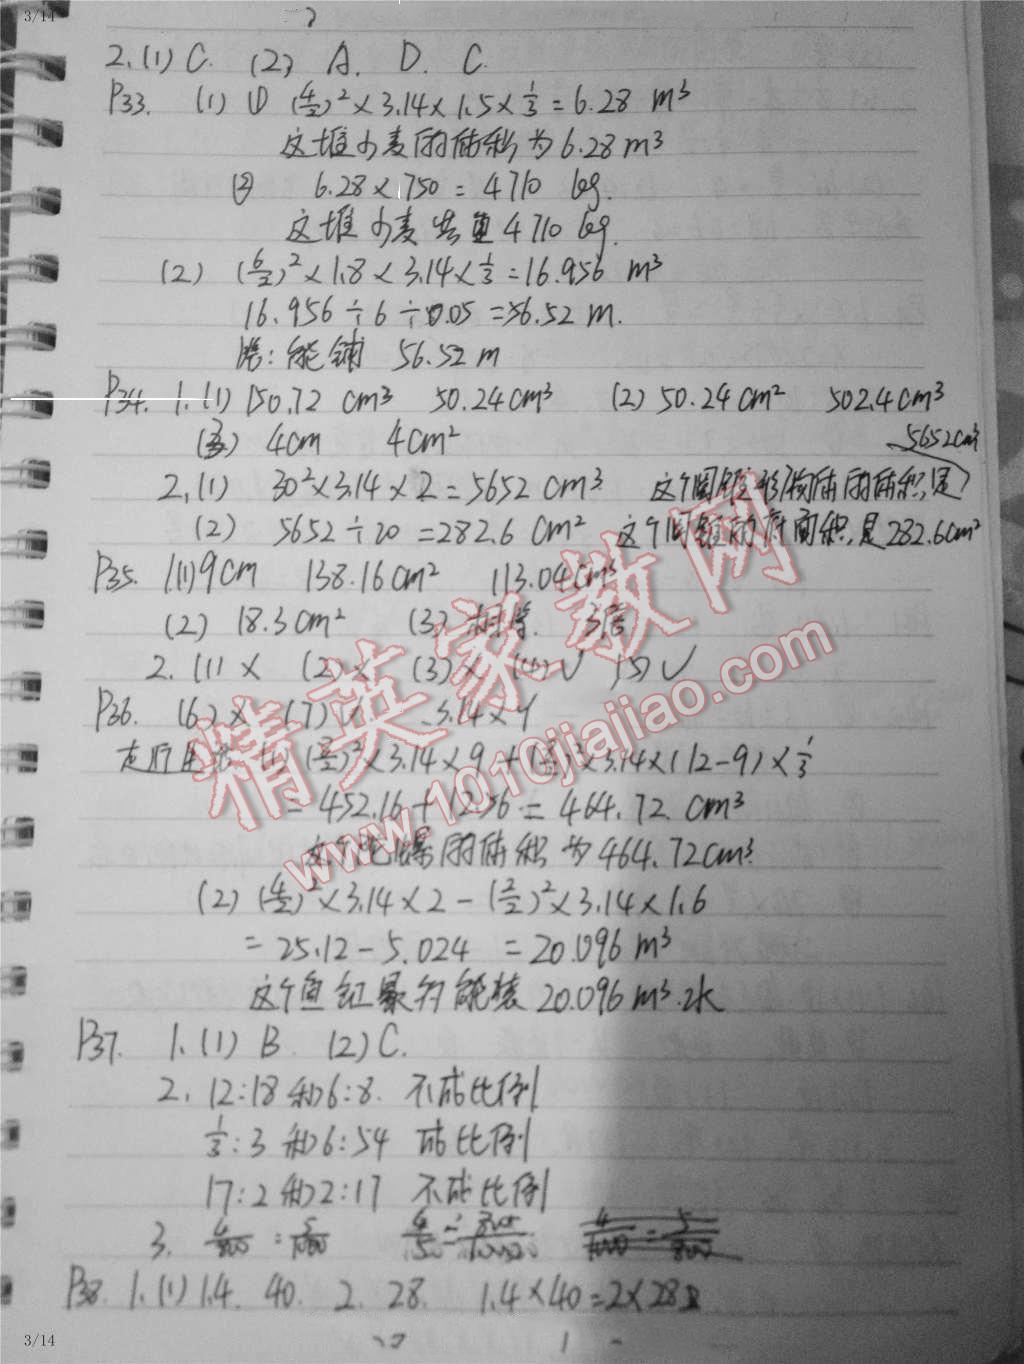 3/14
2.(1)C. (2) A. D. C.
P33. (1) ① (4/2)²×3.14×1.5×1/3=6.28 m³
这堆小麦的体积为6.28m³
② 6.28×750=4710 kg.
这堆小麦共重4710kg.
(2) (6/2)²×1.8×3.14×1/3=16.956 m³
16.956÷6÷0.05=56.52 m.
答:能铺 56.52m
P34. 1.(1) 150.72 cm³ 50.24cm³ (2) 50.24cm² 502.4cm³
(3) 4cm 4cm²
5652cm³
2.(1) 30²×3.14×2=5652 cm³ 这个圆锥形物体的体积是
(2) 5652÷20=282.6 cm² 这个圆锥的底面积是282.6cm²
P35. 1.(1)9cm 138.16cm² 113.04cm³
(2) 18.3cm² (3) 相等. 3倍
2.(1)× (2)× (3)× (4)√ (5)√
P36. (6)× (7) 3.14×4
(1) (8/2)²×3.14×9+(4/2)²×3.14×(12-9)×1/3
=452.16+12.56=464.72 cm³
这个陀螺的体积为464.72cm³.
(2) (4/2)²×3.14×2-(2/2)²×3.14×1.6
=25.12-5.024=20.096 m³
这个鱼缸最多能装20.096m³水
P37. 1.(1) B (2)C.
2. 12:18和6:8. 不成比例
1/3:3和6:54 成比例
17:2和2:17 不成比例
3. 4/800=5/1000
P38. 1.(1)1.4. 40. 2. 28. 1.4×40=2×28
精英家教网
www.1010jiajiao.com
3/14